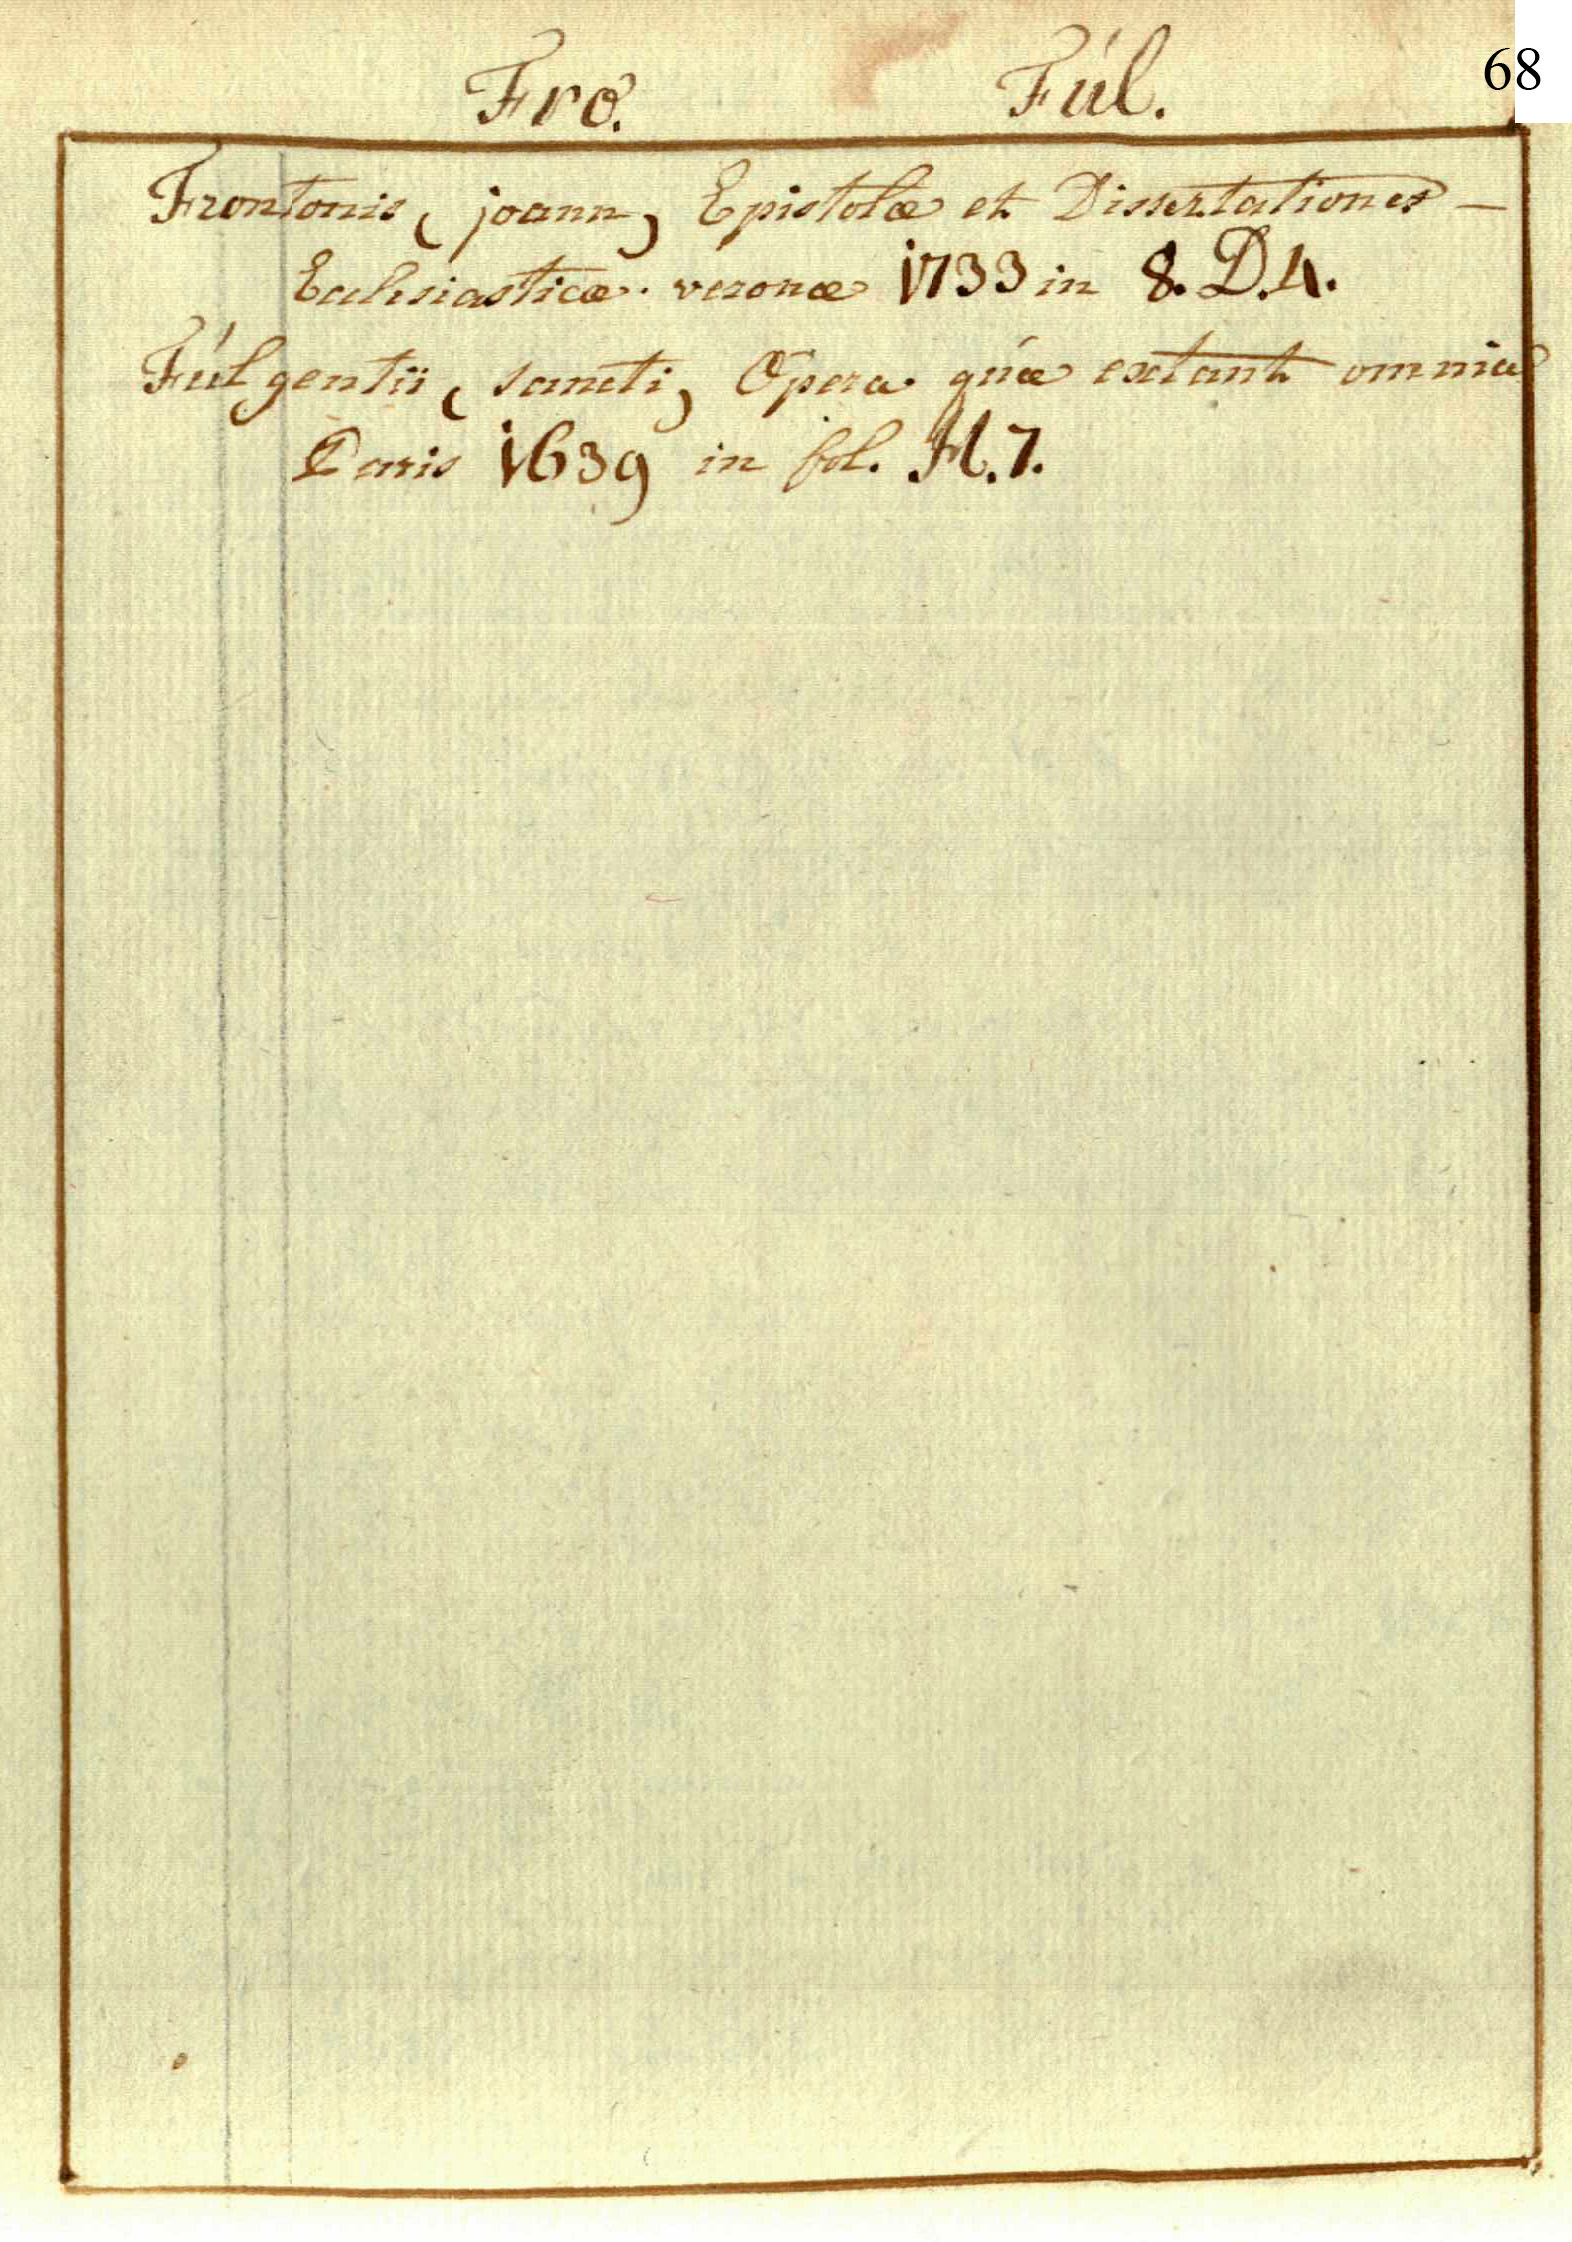 Fro. Fúl. 68
Frontonis (joann) Epistolæ et Dissertationes —
Ecclesiasticæ. veronæ 1733 in 8. D.4.
Fúlgentii (sancti) Opera qúæ extant omnia
Paris 1639 in fol. H.7.